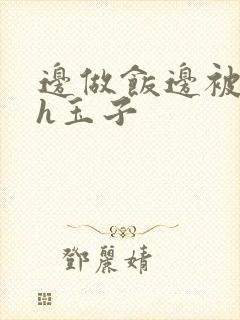 邊做飯邊被
h玉子
鄧麗婧